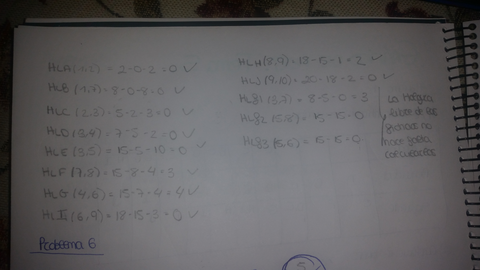 HLA (1,2) = 2-0-2 = 0 ✓
HLB (1,3) = 8-0-8 = 0 ✓
HLC (2,3) = 5-2-3 = 0 ✓
HLD (3,4) = 7-5-2 = 0 ✓
HLE (3,5) = 15-5-10 = 0 ✓
HLF (7,8) = 15-8-4 = 3 ✓
HLG (4,6) = 15-7-4 = 4 ✓
HLI (6,9) = 18-15-3 = 0 ✓
Problema 6
HLH (8,9) = 18-15-1 = 2 ✓
HLJ (9,10) = 20-18-2 = 0 ✓
HLf1 (3,7) = 8-5-0 = 3
HLf2 (5,8) = 15-15-0
HLf3 (5,6) = 15-15-0
La holgura
libre de las
no
hace falta
calcularlas
5